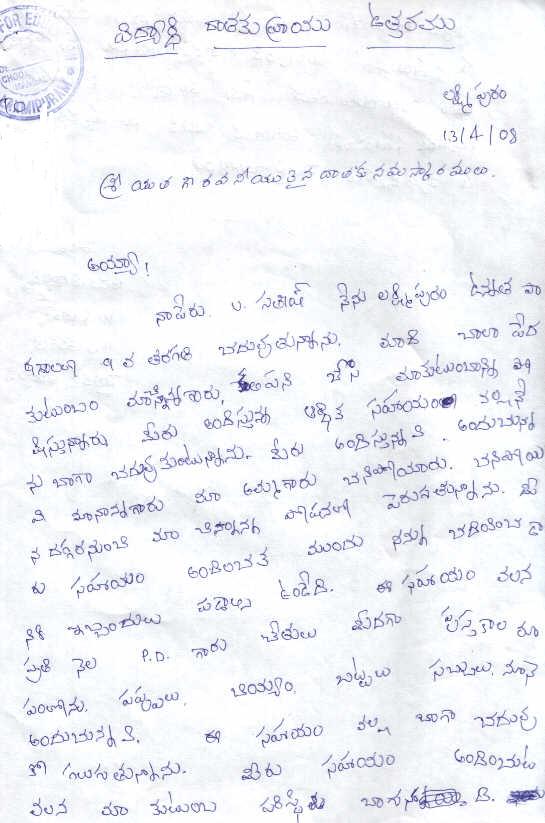 విద్యార్థి దాతకు వ్రాయు ఉత్తరము
FOR EDU
లక్ష్మీపురం
13/4/08
శ్రీయుత గౌరవనీయులైన దాతకు నమస్కారములు.
అయ్యా!
నాపేరు. U. సతీష్ నేను లక్ష్మీపురం ఉన్నత పా
ఠశాలలో 9వ తరగతి చదువుతున్నాను. మాది చాలా పేద
కుటుంబం మాచిన్నాన్నగారు, పని చేసి మాకుటుంబాన్ని పో
షిస్తున్నారు మీరు అందిస్తున్న ఆర్థిక సహాయం వల్ల నే
ను బాగా చదువుకుంటున్నాను. మీరు అందిస్తున్నవి. అందుచున్న
వి మానాన్నగారు మా అమ్మగారు చనిపోయారు. చనిపోయి
న దగ్గరనుంచి మా చిన్నాన్న పోషణలో పెరుగుతున్నాను. మీ
రు సహాయం అందించక ముందు నన్ను చదివించడా
నికి ఇబ్బందులు పడాల్సి ఉండేది. ఈ సహాయం వలన
ప్రతి నెల P.D. గారు చేతులు మీదగా పుస్తకాల రూ
పంలోను, పప్పులు, బియ్యం, బట్టలు సబ్బులు, నూనె
అందుచున్నవి. ఈ సహాయం వల్ల బాగా చదువు
కో గలుగుతున్నాను. మీరు సహాయం అందించుట
వలన మా కుటుంబ పరిస్థితి బాగున్న ది.